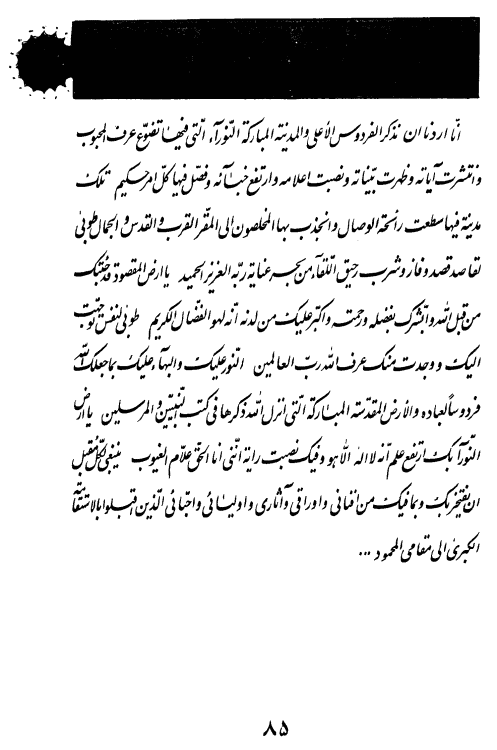 انّا اردنا ان نذكر الفردوس الأعلى والمدينة المباركة النّورآء الّتى فيها تضوّع عرف المحبوب
وانتشرت آياته وظهرت بيّناته ونصبت اعلامه وارتفع خبآئه وفصّل فيها كلّ امر حكيم تلك
مدينة فيها سطعت رائحة الوصال وانجذب بها المخلصون الى المقرّ القرب والقدس والجمال طوبى
لقاصد قصد وفاز وشرب رحيق اللّقآء من بحر عناية ربّه العزيز الحميد يا ارض المقصود قد جئتك
من قبل اللّه وابشّرك بفضله ورحمته واكبّر عليك من لدنه انّه لهو الفضّال الكريم طوبى لنفس توجّهت
اليك ووجدت منك عرف اللّه ربّ العالمين النّور عليك والبهآء عليك بما جعلك اللّه
فردوساً لعباده والأرض المقدّسة المباركة الّتى انزل اللّه ذكرها فى كتب النّبيّين والمرسلين يا ارض
النّورآء بك ارتفع علم انّه لا اله الّا هو وفيك نصبت راية انّنى انا الحقّ علّام الغيوب ينبغى لكلّ مقبل
ان يفتخر بك وبما فيك من افنانى واوراقى وآثارى واوليائى واحبّائى الّذين اقبلوا بالاستقامة
الكبرى الى مقامى المحمود ...
۸۵